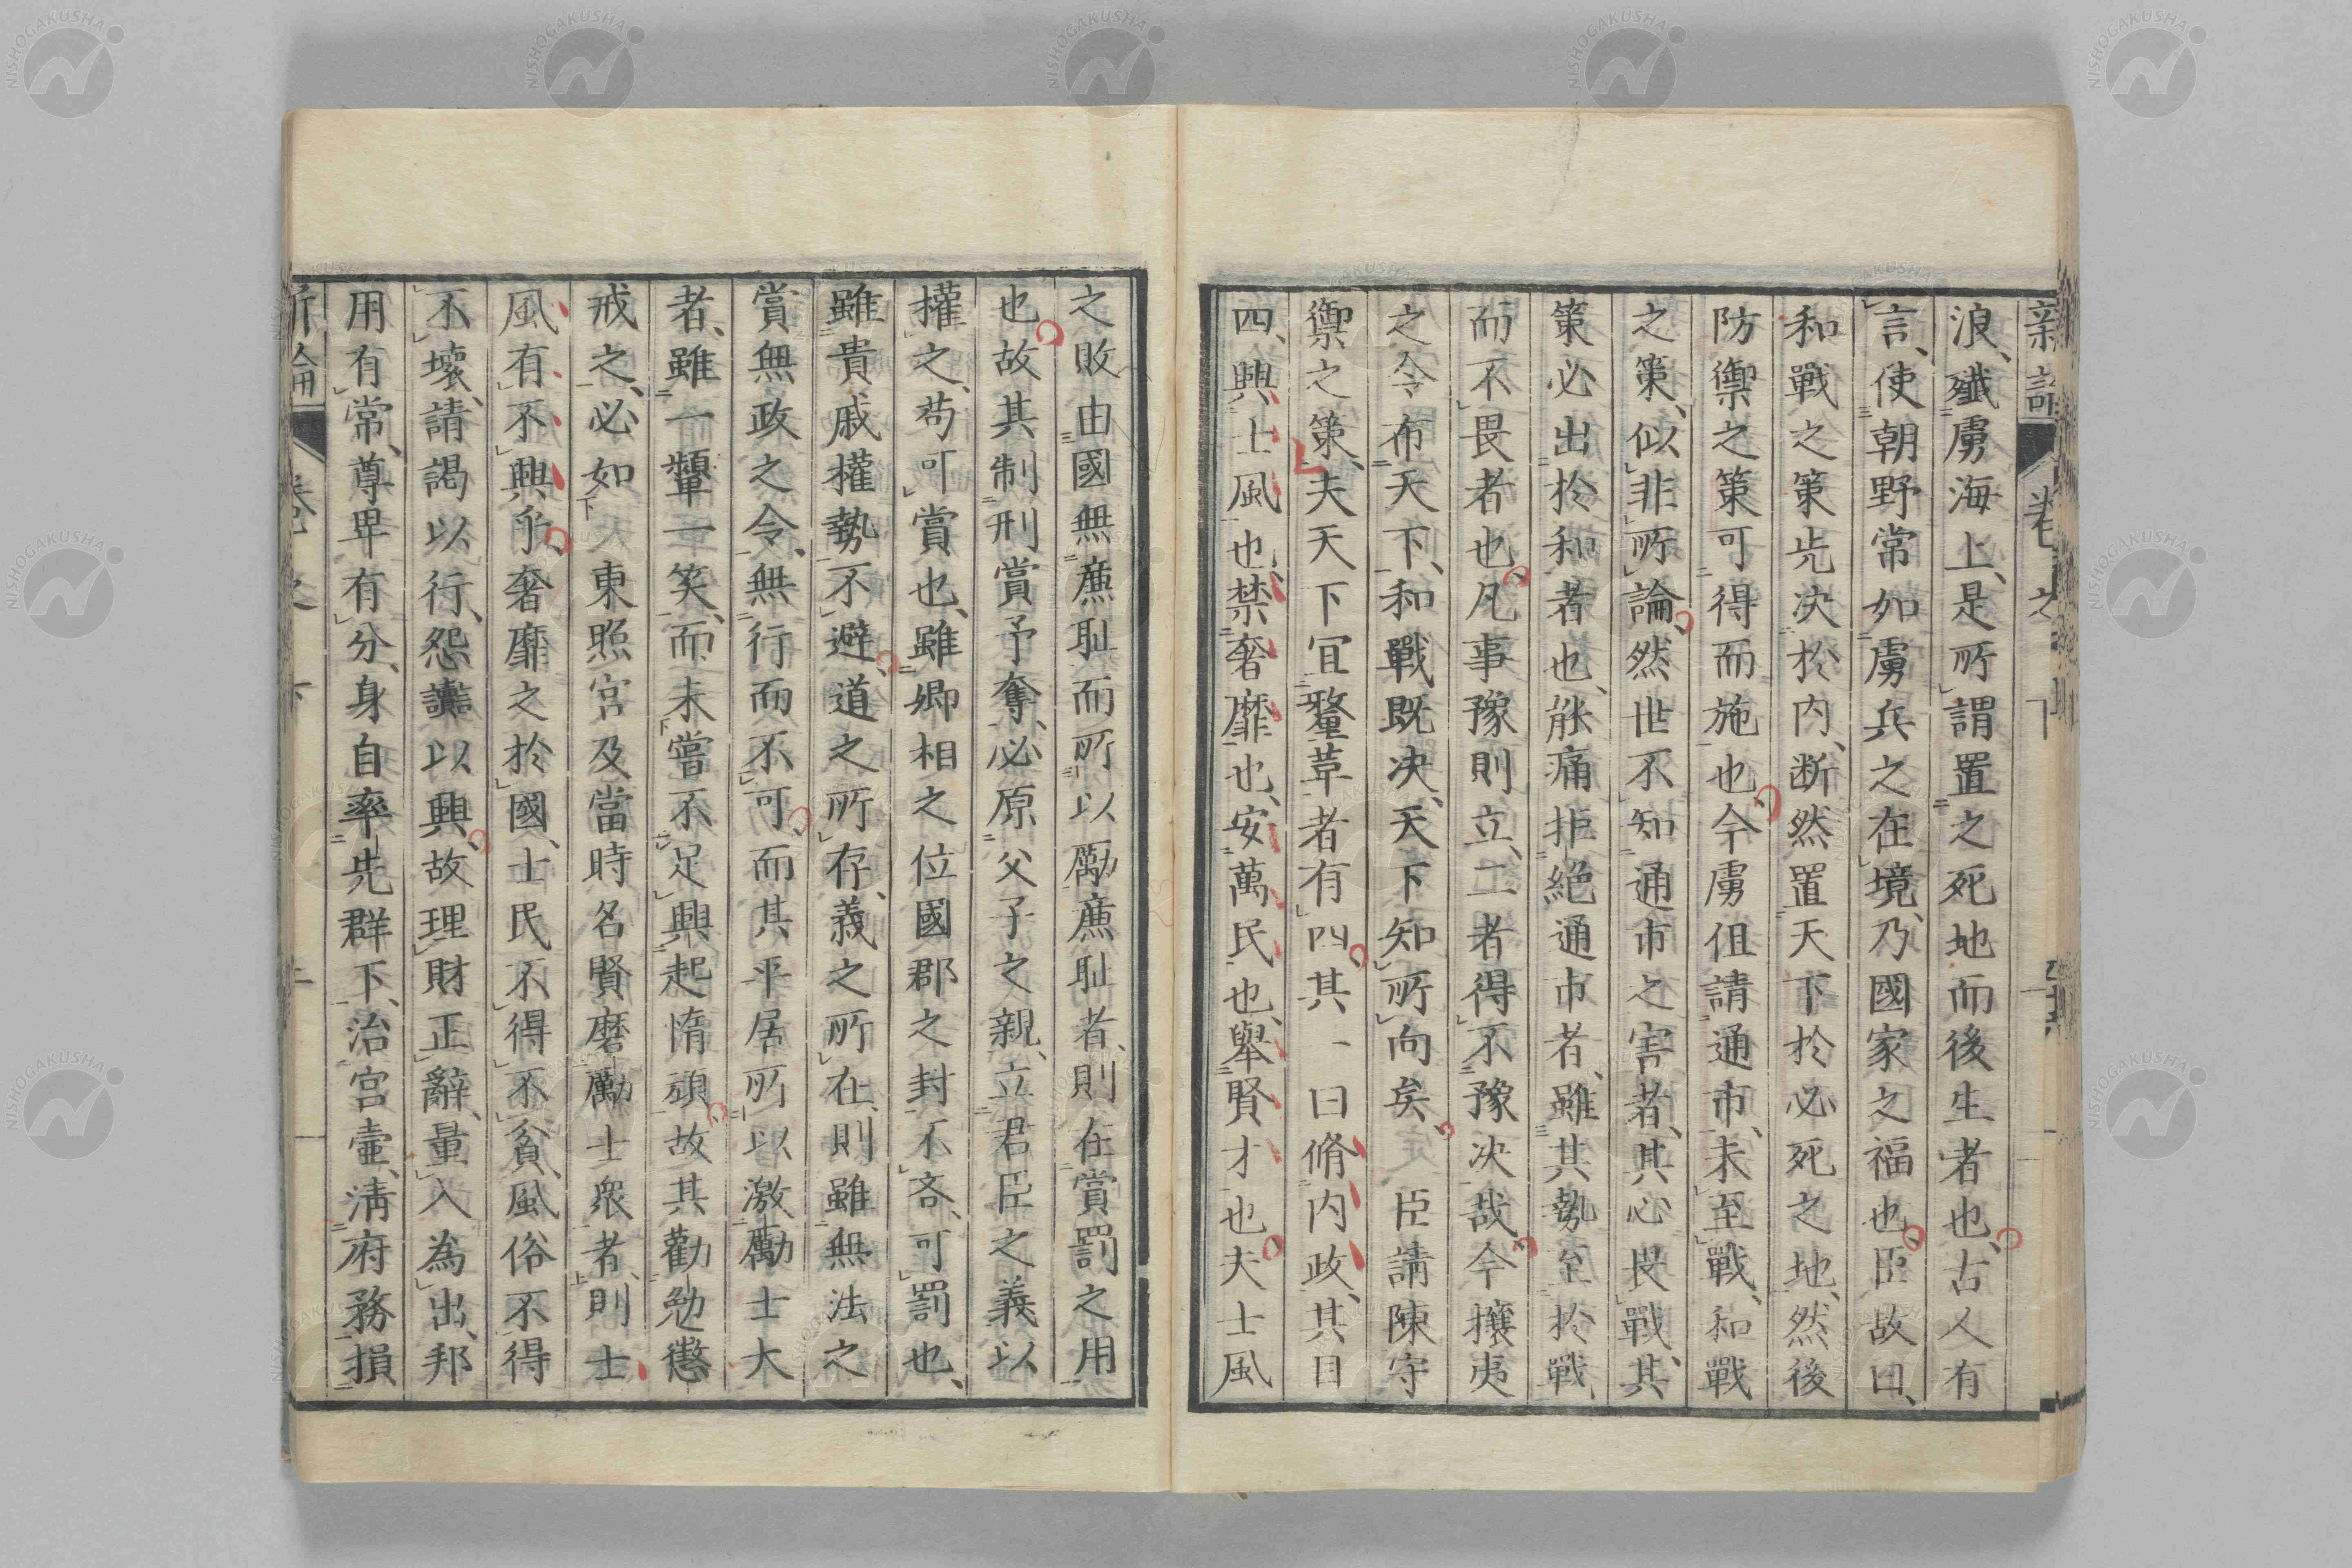 新論 卷之下
浪、殲虜海上、是所謂置之死地而後生者也、古人有
言、使朝野常如虜兵之在境、乃國家之福也、臣故曰、
和戰之策先決於內、斷然置天下於必死之地、然後
防禦之策可得而施也、今虜伹請通市、未至戰、和戰
之策、似非所論、然世不知通市之害者、其心畏戰、其
策必出於和者也、能痛拒絕通市者、雖其勢至於戰、
而不畏者也、凡事豫則立、二者得不豫决哉、今攘夷
之令布天下、和戰既决、天下知所向矣、臣請陳守
禦之策、夫天下冝釐革者有四、其一曰脩內政、其目
四、興士風也、禁奢靡也、安萬民也、舉賢才也、夫士風
之敗由國無廉耻而所以勵廉耻者、則在賞罰之用
也、故其制刑賞予奪、必原父子之親、立君臣之義以
權之、苟可賞也、雖卿相之位國郡之封不吝、可罰也、
雖貴戚權勢不避、道之所存、義之所在、則雖無法之
賞無政之令、無行而不可、而其平居所以激勵士大
者、雖一顰一笑、而未嘗不足興起惰頑、故其勸勉懲
戒之、必如東照宮及當時名賢磨勵士衆者、則士
風有不興乎、奢靡之於國、士民不得不貧、風俗不得
不壞、請謁以行、怨讟以興、故理財正辭、量入為出、邦
用有常、尊卑有分、身自率先群下、治宮壼、淸府務、損
新論 卷之下
NISHOGAKUSHA